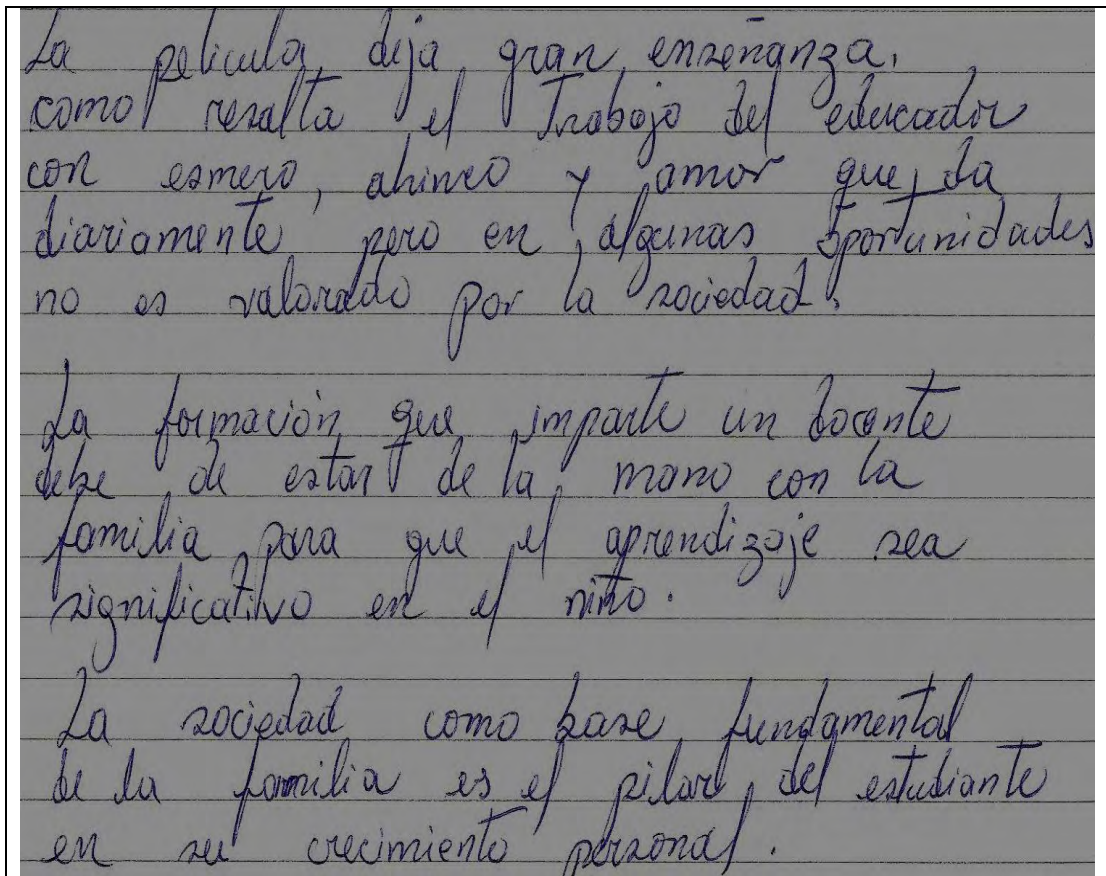 La pelicula deja gran enseñanza,
como resalta el Trabajo del educador
con esmero, ahinco y amor que da
diariamente pero en algunas oportunidades
no es valorado por la sociedad.
La formación que imparte un docente
debe de estar de la mano con la
familia para que el aprendizaje sea
significativo en el niño.
La sociedad como base fundamental
de la familia es el pilar del estudiante
en su crecimiento personal.